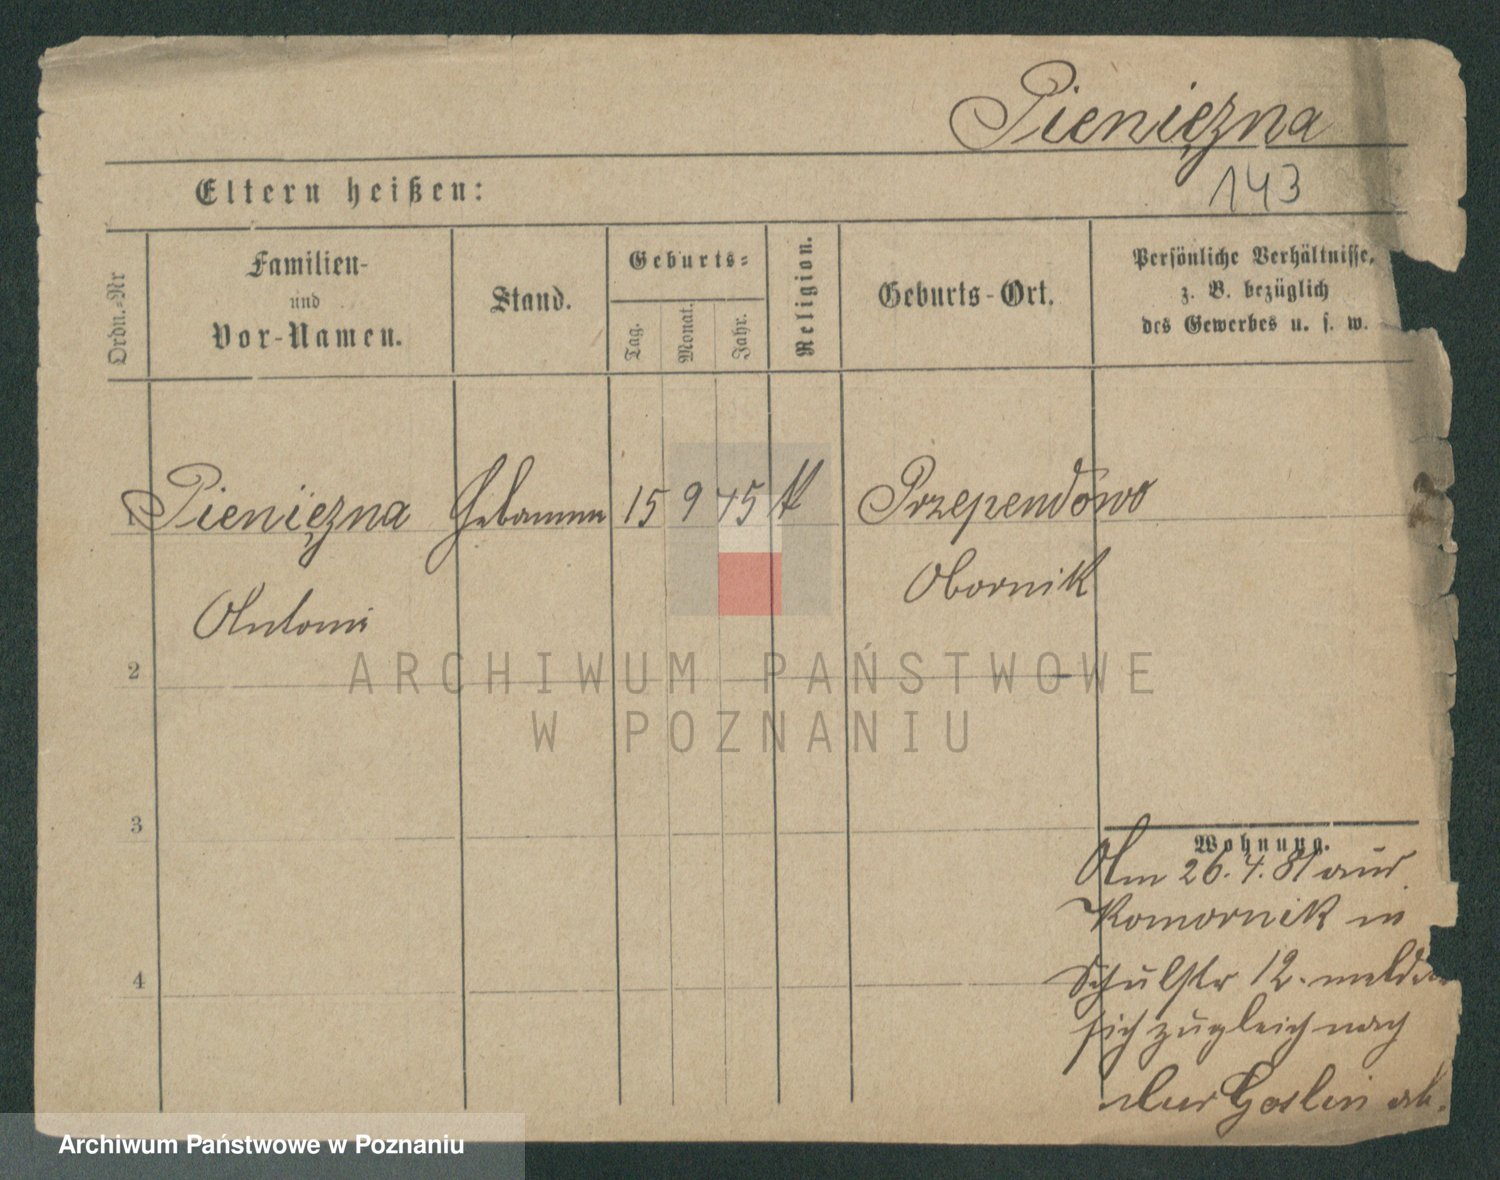 Pieniężna
143
Eltern heißen:
Ordn.-Nr
Familien-
und
Vor-Namen.
Stand.
Geburts-
Tag.
Monat.
Jahr.
Religion.
Geburts-Ort.
Persönliche Verhältnisse,
z. B. bezüglich
des Gewerbes u. s. w.
1
Pieniężna Hebamme 15 9 45 K Przependowo
Obornik
Antoni
2
ARCHIWUM PAŃSTWOWE
W POZNANIU
3
Wohnung.
Am 26.4.81 aus
Komornik in
Schulstr 12. melden
sich zugleich nach
Mur Goslin ab.
4
Archiwum Państwowe w Poznaniu